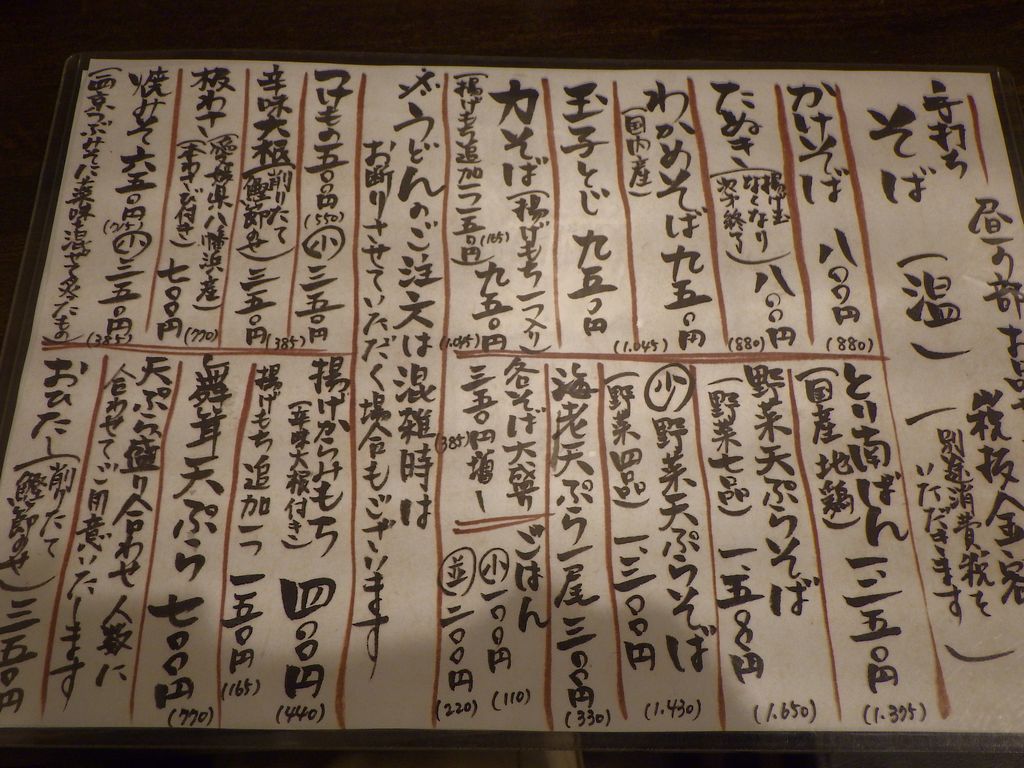 手打ち
そば
(温)
昼の部
税抜金額
別途消費税を
いただきます
かけそば 八〇〇円
(880)
たぬき
(揚げ玉
なくなり
次第終了)
八〇〇円
(880)
わかめそば 九五〇円
(国内産)
(1.045)
玉子とじ 九五〇円
力そば(揚げもち一つ入り) 九五〇円
(揚げもち追加一つ一五〇円)
(165)
(1.045)
とり南ばん 一、二五〇円
(国産地鶏)
(1.375)
野菜天ぷらそば 一、五〇〇円
(野菜七品)
(1.650)
小 野菜天ぷらそば 一、三〇〇円
(野菜四品)
(1.430)
海老天ぷら一尾 三〇〇円
(330)
各そば大盛り
三五〇円増し
(385)
ごはん
小 一〇〇円
(110)
並 二〇〇円
(220)
うどんのご注文は混雑時は
お断りさせていただく場合もございます
つけもの 五〇〇円 小 三五〇円
(550)
(385)
辛味大根(削りたて
鰹節) 三五〇円
(385)
板わさ(愛媛県八幡浜産)
(本わさび付き) 七〇〇円
(770)
焼みそ 六五〇円 小 三五〇円
(715)
(385)
揚げからみもち 四〇〇円
(辛味大根付き)
(440)
揚げもち追加一つ 一五〇円
(165)
舞茸天ぷら 七〇〇円
(770)
天ぷら盛り合わせ人数に
合わせてご用意いたします
おひたし(削りたて
鰹節のせ) 三五〇円